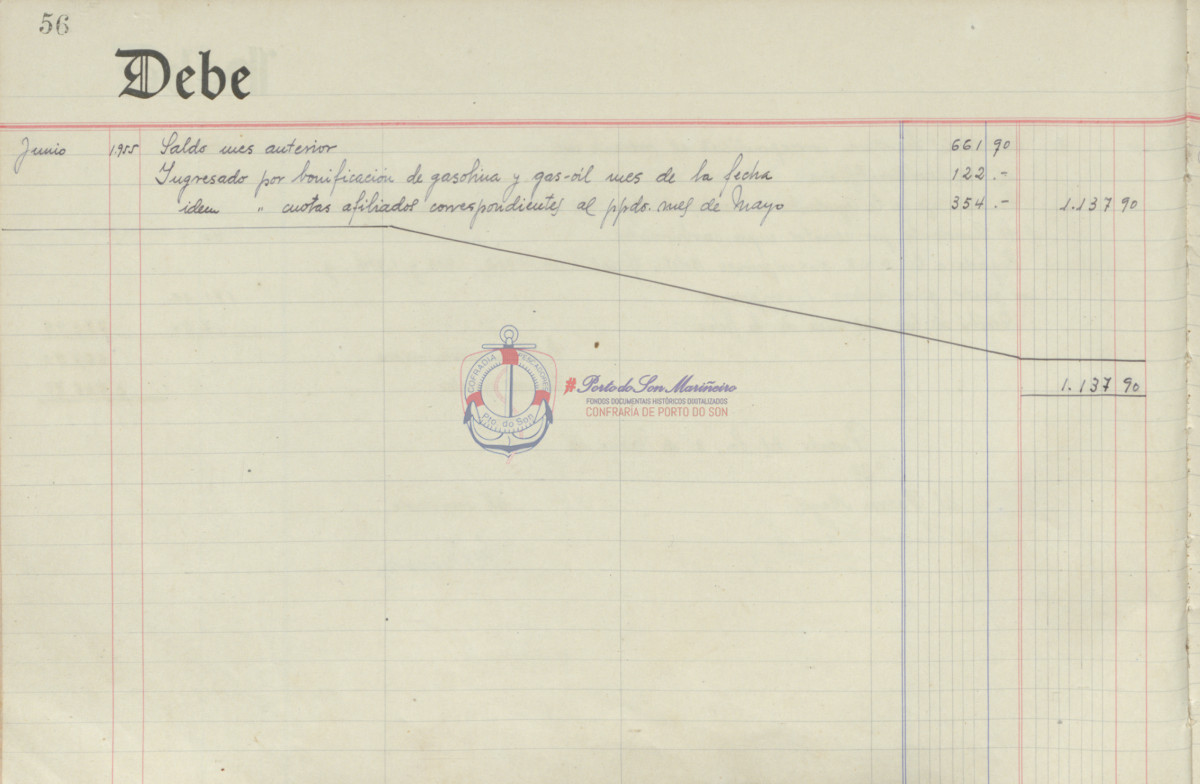 56
Debe
Junio 1955 Saldo mes anterior 661 90
Ingresado por bonificación de gasolina y gas-oil mes de la fecha 122.-
idem " cuotas afiliados correspondientes al ppdo. mes de Mayo 354.- 1.137 90
1.137 90
COFRADIA PESCADORES
Pto. do Son
#Porto do Son Mariñeiro
FONDOS DOCUMENTAIS HISTÓRICOS DIXITALIZADOS
CONFRARÍA DE PORTO DO SON